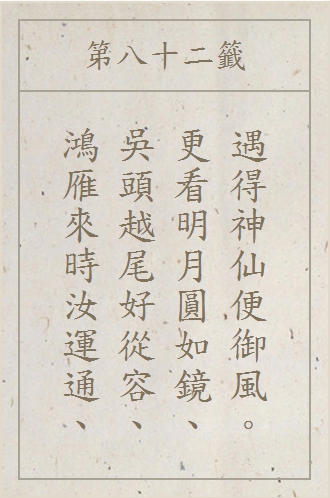 第八十二籤
鴻雁來時汝運通、
吳頭越尾好從容、
更看明月圓如鏡、
遇得神仙便御風。